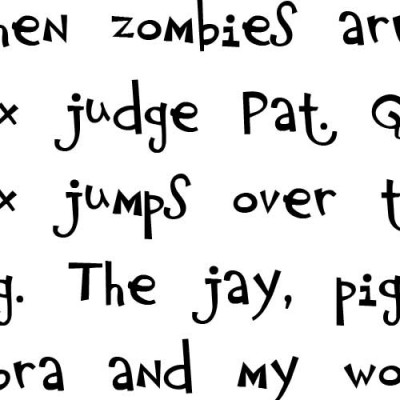 hen zombies arr
x judge Pat. Q
x jumps over t
g. The jay, pig
bra and my wo